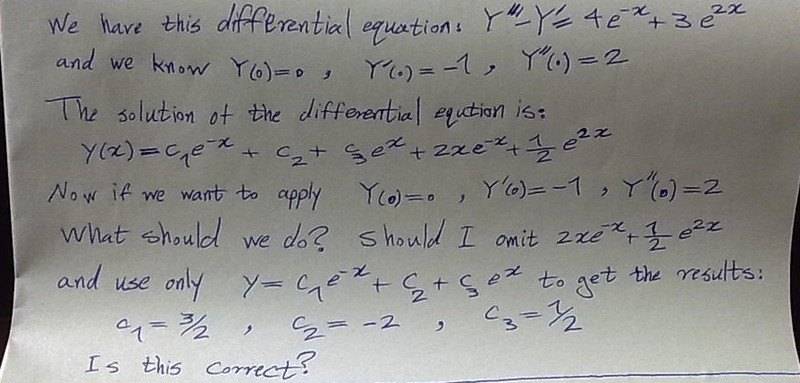 We have this differential equation: Y'''-Y'= 4e^-x + 3e^2x
and we know Y(0)=0 , Y'(0)=-1 , Y''(0)=2
The solution of the differential eqution is:
y(x)=c₁e^-x + c₂+ c₃e^x + 2xe^-x + 1/2 e^2x
Now if we want to apply Y(0)=0 , Y'(0)=-1 , Y''(0)=2
What should we do? Should I omit 2xe^-x + 1/2 e^2x
and use only y= c₁e^-x + c₂ + c₃ e^x to get the results:
c₁= 3/2 , c₂= -2 , c₃= 1/2
Is this correct?